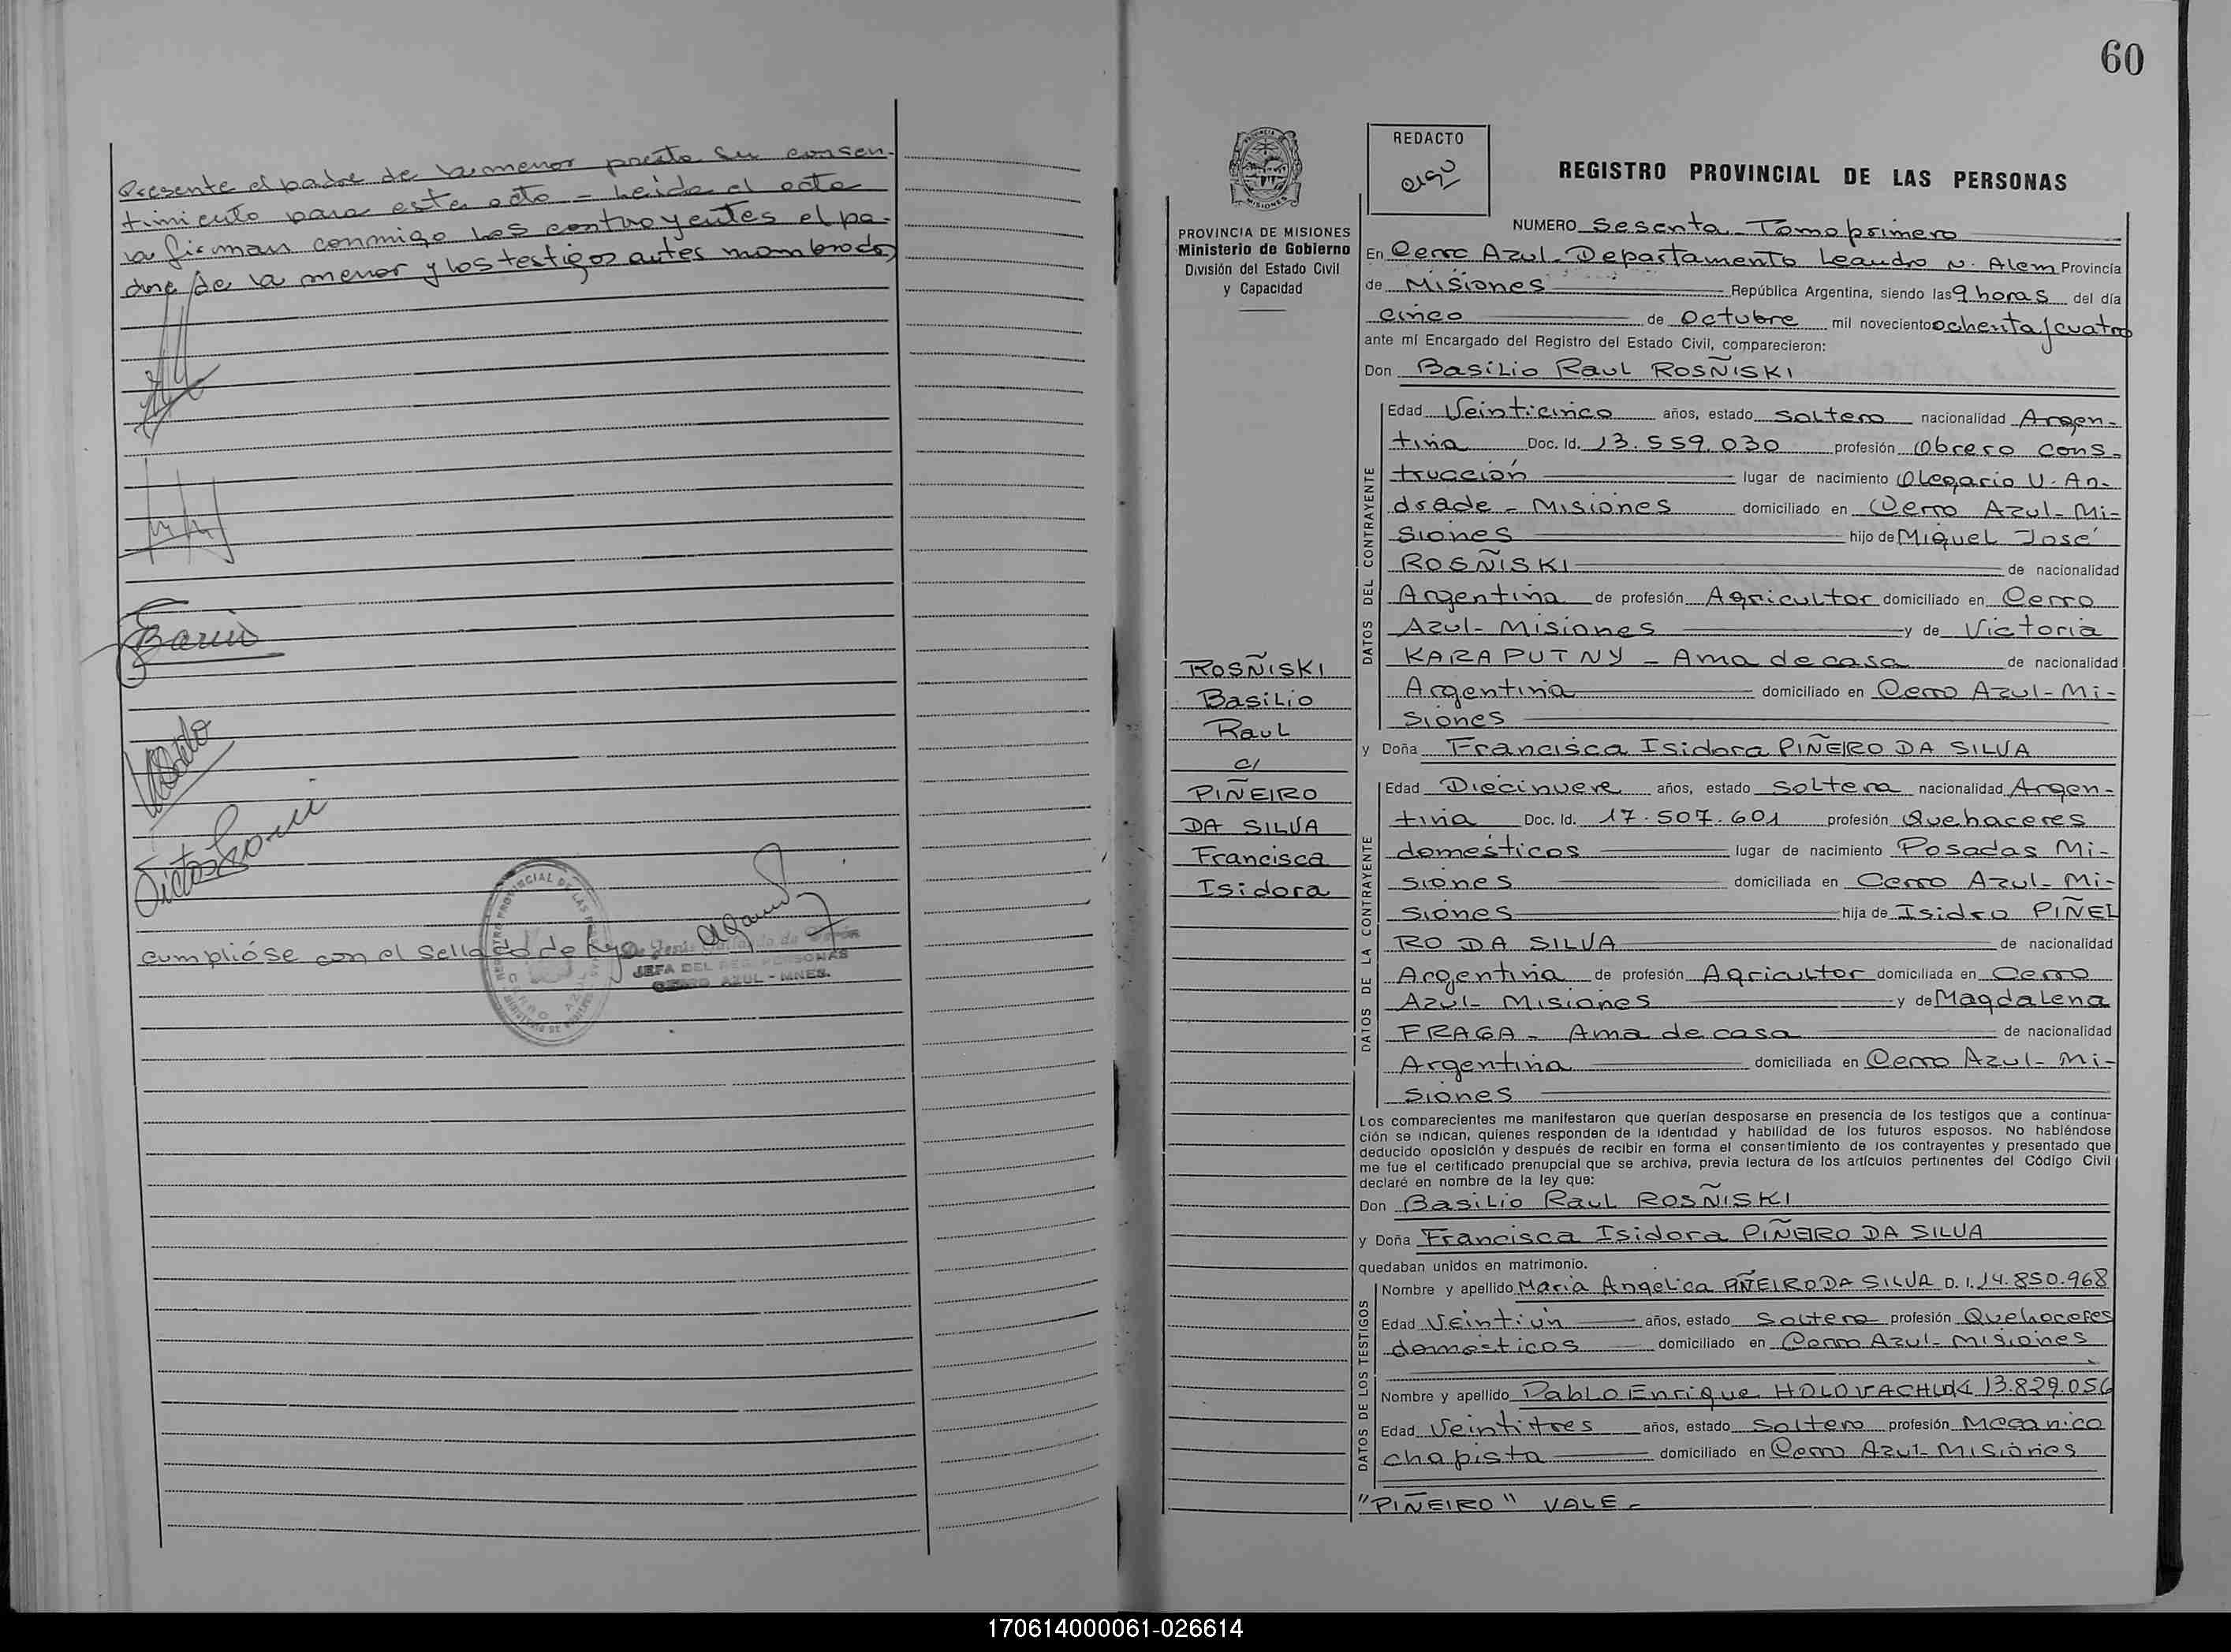 Presente el padre de la menor presta su consen-
timiento para este acto - Leida el acta
la firman conmigo los contrayentes el pa-
dre de la menor y los testigos antes nombrados
cumplióse con el sellado de Ley
JEFA DEL REG. PERSONAS
CERRO AZUL - MNES.
60
PROVINCIA DE MISIONES
Ministerio de Gobierno
División del Estado Civil
y Capacidad
ROSÑISKI
Basilio
Raul
c/
PIÑEIRO
DA SILVA
Francisca
Isidora
REDACTO
REGISTRO PROVINCIAL DE LAS PERSONAS
NUMERO Sesenta - Tomo primero
En Cerro Azul - Departamento Leandro N. Alem Provincia
de Misiones República Argentina, siendo las 9 horas del día
cinco de Octubre mil novecientos ochenta y cuatro
ante mí Encargado del Registro del Estado Civil, comparecieron:
Don Basilio Raul ROSÑISKI
DATOS DEL CONTRAYENTE
Edad Veinticinco años, estado soltero nacionalidad Argen-
tina Doc. Id. 13.559.030 profesión Obrero cons-
trucción lugar de nacimiento Olegario V. An-
drade - Misiones domiciliado en Cerro Azul - Mi-
siones hijo de Miguel José
ROSÑISKI de nacionalidad
Argentina de profesión Agricultor domiciliado en Cerro
Azul - Misiones y de Victoria
KARAPUTNY - Ama de casa de nacionalidad
Argentina domiciliado en Cerro Azul - Mi-
siones
y Doña Francisca Isidora PIÑEIRO DA SILVA
DATOS DE LA CONTRAYENTE
Edad Diecinueve años, estado soltera nacionalidad Argen-
tina Doc. Id. 17.507.601 profesión Quehaceres
domésticos lugar de nacimiento Posadas Mi-
siones domiciliada en Cerro Azul - Mi-
siones hija de Isidro PIÑEI
RO DA SILVA de nacionalidad
Argentina de profesión Agricultor domiciliada en Cerro
Azul - Misiones y de Magdalena
FRAGA - Ama de casa de nacionalidad
Argentina domiciliada en Cerro Azul - Mi-
siones
Los comparecientes me manifestaron que querían desposarse en presencia de los testigos que a continua-
ción se indican, quienes responden de la identidad y habilidad de los futuros esposos. No habiéndose
deducido oposición y después de recibir en forma el consentimiento de los contrayentes y presentado que
me fue el certificado prenupcial que se archiva, previa lectura de los artículos pertinentes del Código Civil
declaré en nombre de la ley que:
Don Basilio Raul ROSÑISKI
y Doña Francisca Isidora PIÑEIRO DA SILVA
quedaban unidos en matrimonio.
DATOS DE LOS TESTIGOS
Nombre y apellido Maria Angelica PIÑEIRO DA SILVA D.I. 14.850.968
Edad Veintiún años, estado Soltera profesión Quehaceres
domésticos domiciliado en Cerro Azul - Misiones
Nombre y apellido Pablo Enrique HOLOVACHUK 13.829.056
Edad Veintitres años, estado soltero profesión Mecanico
chapista domiciliado en Cerro Azul - Misiones
"PIÑEIRO" VALE -
170614000061-026614